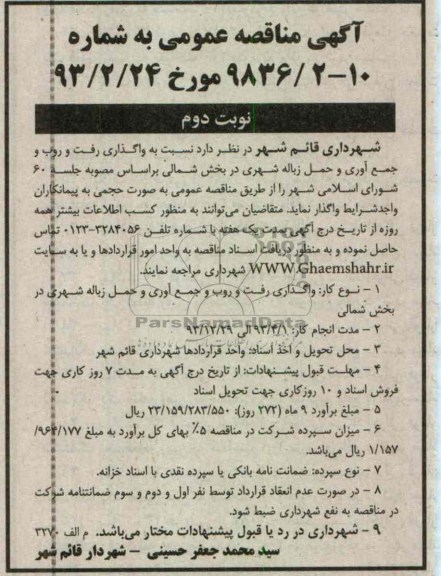 آگهی مناقصه عمومی به شماره
۹۸۳۶/۲-۱۰ مورخ ۹۳/۲/۲۴
نوبت دوم
شهرداری قائم شهر در نظر دارد نسبت به واگذاری رفت و روب و
جمع آوری و حمل زباله شهری در بخش شمالی براساس مصوبه جلسه ۶۰
شورای اسلامی شهر را از طریق مناقصه عمومی به صورت حجمی به پیمانکاران
واجدشرایط واگذار نماید. متقاضیان می‌توانند به منظور کسب اطلاعات بیشتر همه
روزه از تاریخ درج آگهی بمدت یک هفته با شماره تلفن ۳۲۸۴۰۵۶-۰۱۲۳ تماس
حاصل نموده و به منظور دریافت اسناد مناقصه به واحد امور قراردادها و یا به سایت
WWW.Ghaemshahr.ir شهرداری مراجعه نمایند.
۱ - نوع کار: واگذاری رفت و روب و جمع آوری و حمل زباله شهری در
بخش شمالی
ParsNamadData
۲ - مدت انجام کار: ۹۳/۴/۱ الی ۹۳/۱۲/۲۹
۳ - محل تحویل و اخذ اسناد: واحد قراردادها شهرداری قائم شهر
۴ - مهلت قبول پیشنهادات: از تاریخ درج آگهی به مدت ۷ روز کاری جهت
فروش اسناد و ۱۰ روزکاری جهت تحویل اسناد
۵ - مبلغ برآورد ۹ ماه (۲۷۲ روز): ۲۳/۱۵۹/۲۸۳/۵۵۰ ریال
۶ - میزان سپرده شرکت در مناقصه ۵٪ بهای کل برآورد به مبلغ ۹۶۴/۱۷۷/
۱/۱۵۷ ریال می‌باشد.
۷ - نوع سپرده: ضمانت نامه بانکی یا سپرده نقدی با اسناد خزانه.
۸ - در صورت عدم انعقاد قرارداد توسط نفر اول و دوم و سوم ضمانتنامه شرکت
در مناقصه به نفع شهرداری ضبط شود.
۹ - شهرداری در رد یا قبول پیشنهادات مختار می‌باشد. م الف ۳۲۷۰
سید محمد جعفر حسینی - شهردار قائم شهر